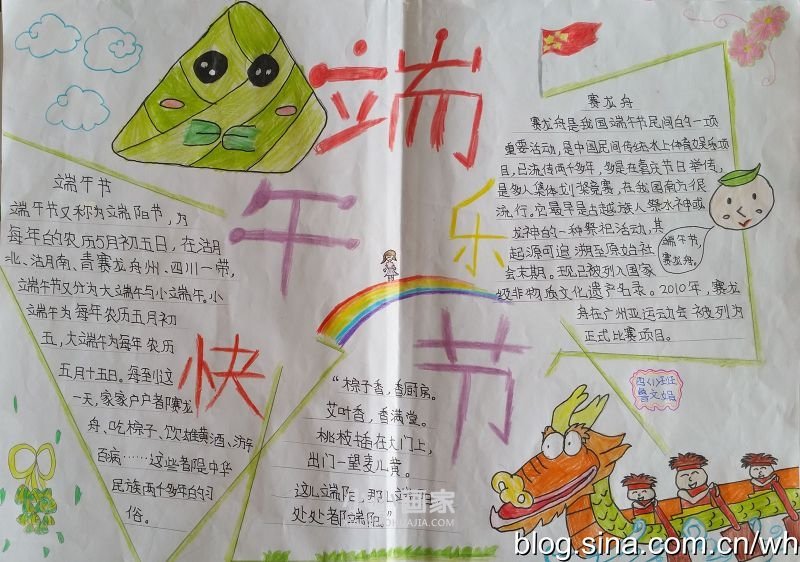 端午节快乐
端午节
端午节又称为端阳节,为
每年的农历5月初五日,在湖
北、湖南、青赛龙舟州、四川一带,
端午节又分为大端午与小端午。小
端午为每年农历五月初
五,大端午为每年农历
五月十五日。每到这
一天,家家户户都赛龙
舟、吃粽子、饮雄黄酒、游
百病……这些都是中华
民族两千多年的习
俗。
“粽子香,香厨房。
艾叶香,香满堂。
桃枝插在大门上,
出门一望麦儿黄。
这儿端阳,那儿端
处处都端阳。”
赛龙舟
赛龙舟是我国端午节民间的一项
重要活动,是中国民间传统水上体育娱乐项
目,已流传两千多年,多是在喜庆节日举传,
是多人集体划桨竞赛,在我国南方很
流行,它最早是古越族人祭水神或
龙神的一种祭祀活动,其
起源可追溯至原始社
会末期。现已被列入国家
级非物质文化遗产名录。2010年,赛龙
舟在广州亚运动会被列为
正式比赛项目。
端午节,
赛龙舟。
blog.sina.com.cn/wh